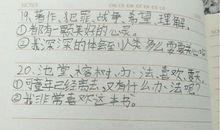 19.著作、犯罪、战争、希望、理解,
①都有一颗美好的心灵。
②我深深的体会到,人类多么需要
20.池塘、榕树、办法、喜欢、
①可童年已经离去,又有什么办法呢?
②我非常喜欢这本书。